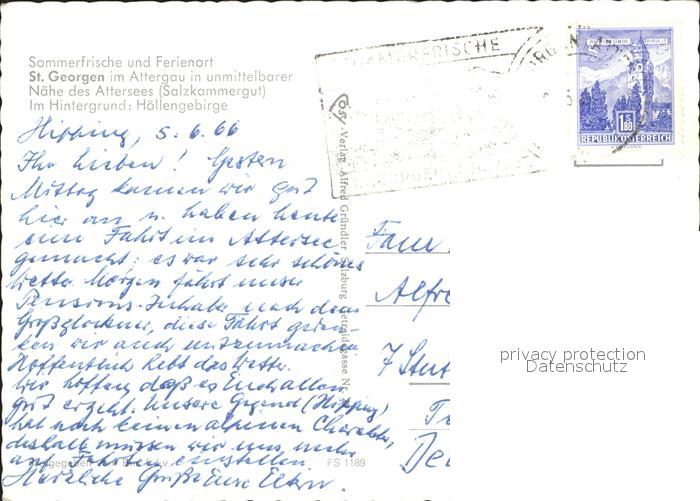 Sommerfrische und Ferienort
St. Georgen im Attergau in unmittelbarer
Nähe des Attersees (Salzkammergut)
Im Hintergrund: Höllengebirge
Hipping, 5.6.66
Ihr Lieben! Gestern
Mittag kamen wir gut
hier an u. haben heute
eine Fahrt im Attersee
gemacht; es war sehr schönes
Wetter. Morgen fährt unser
Pensions-Inhaber nach dem
Großglockner, diese Fahrt geden-
ken wir auch mitzumachen.
Hoffentlich hebt das Wetter.
Wir hoffen daß es Euch allen
gut ergeht. Unsere Gegend (Hipping)
hat noch keinen alpinen Charakter,
deshalb müssen wir uns mehr
auf Fahrten einstellen.
Herzliche Grüße Eure Eltern.
FS 1189
Cosy-Verlag Alfred Gründler Salzburg Getreidegasse Nr.
SOMMERFRISCHE
1.80
REPUBLIK ÖSTERREICH
Fam
Alfre
7 Stut
De
privacy protection
Datenschutz